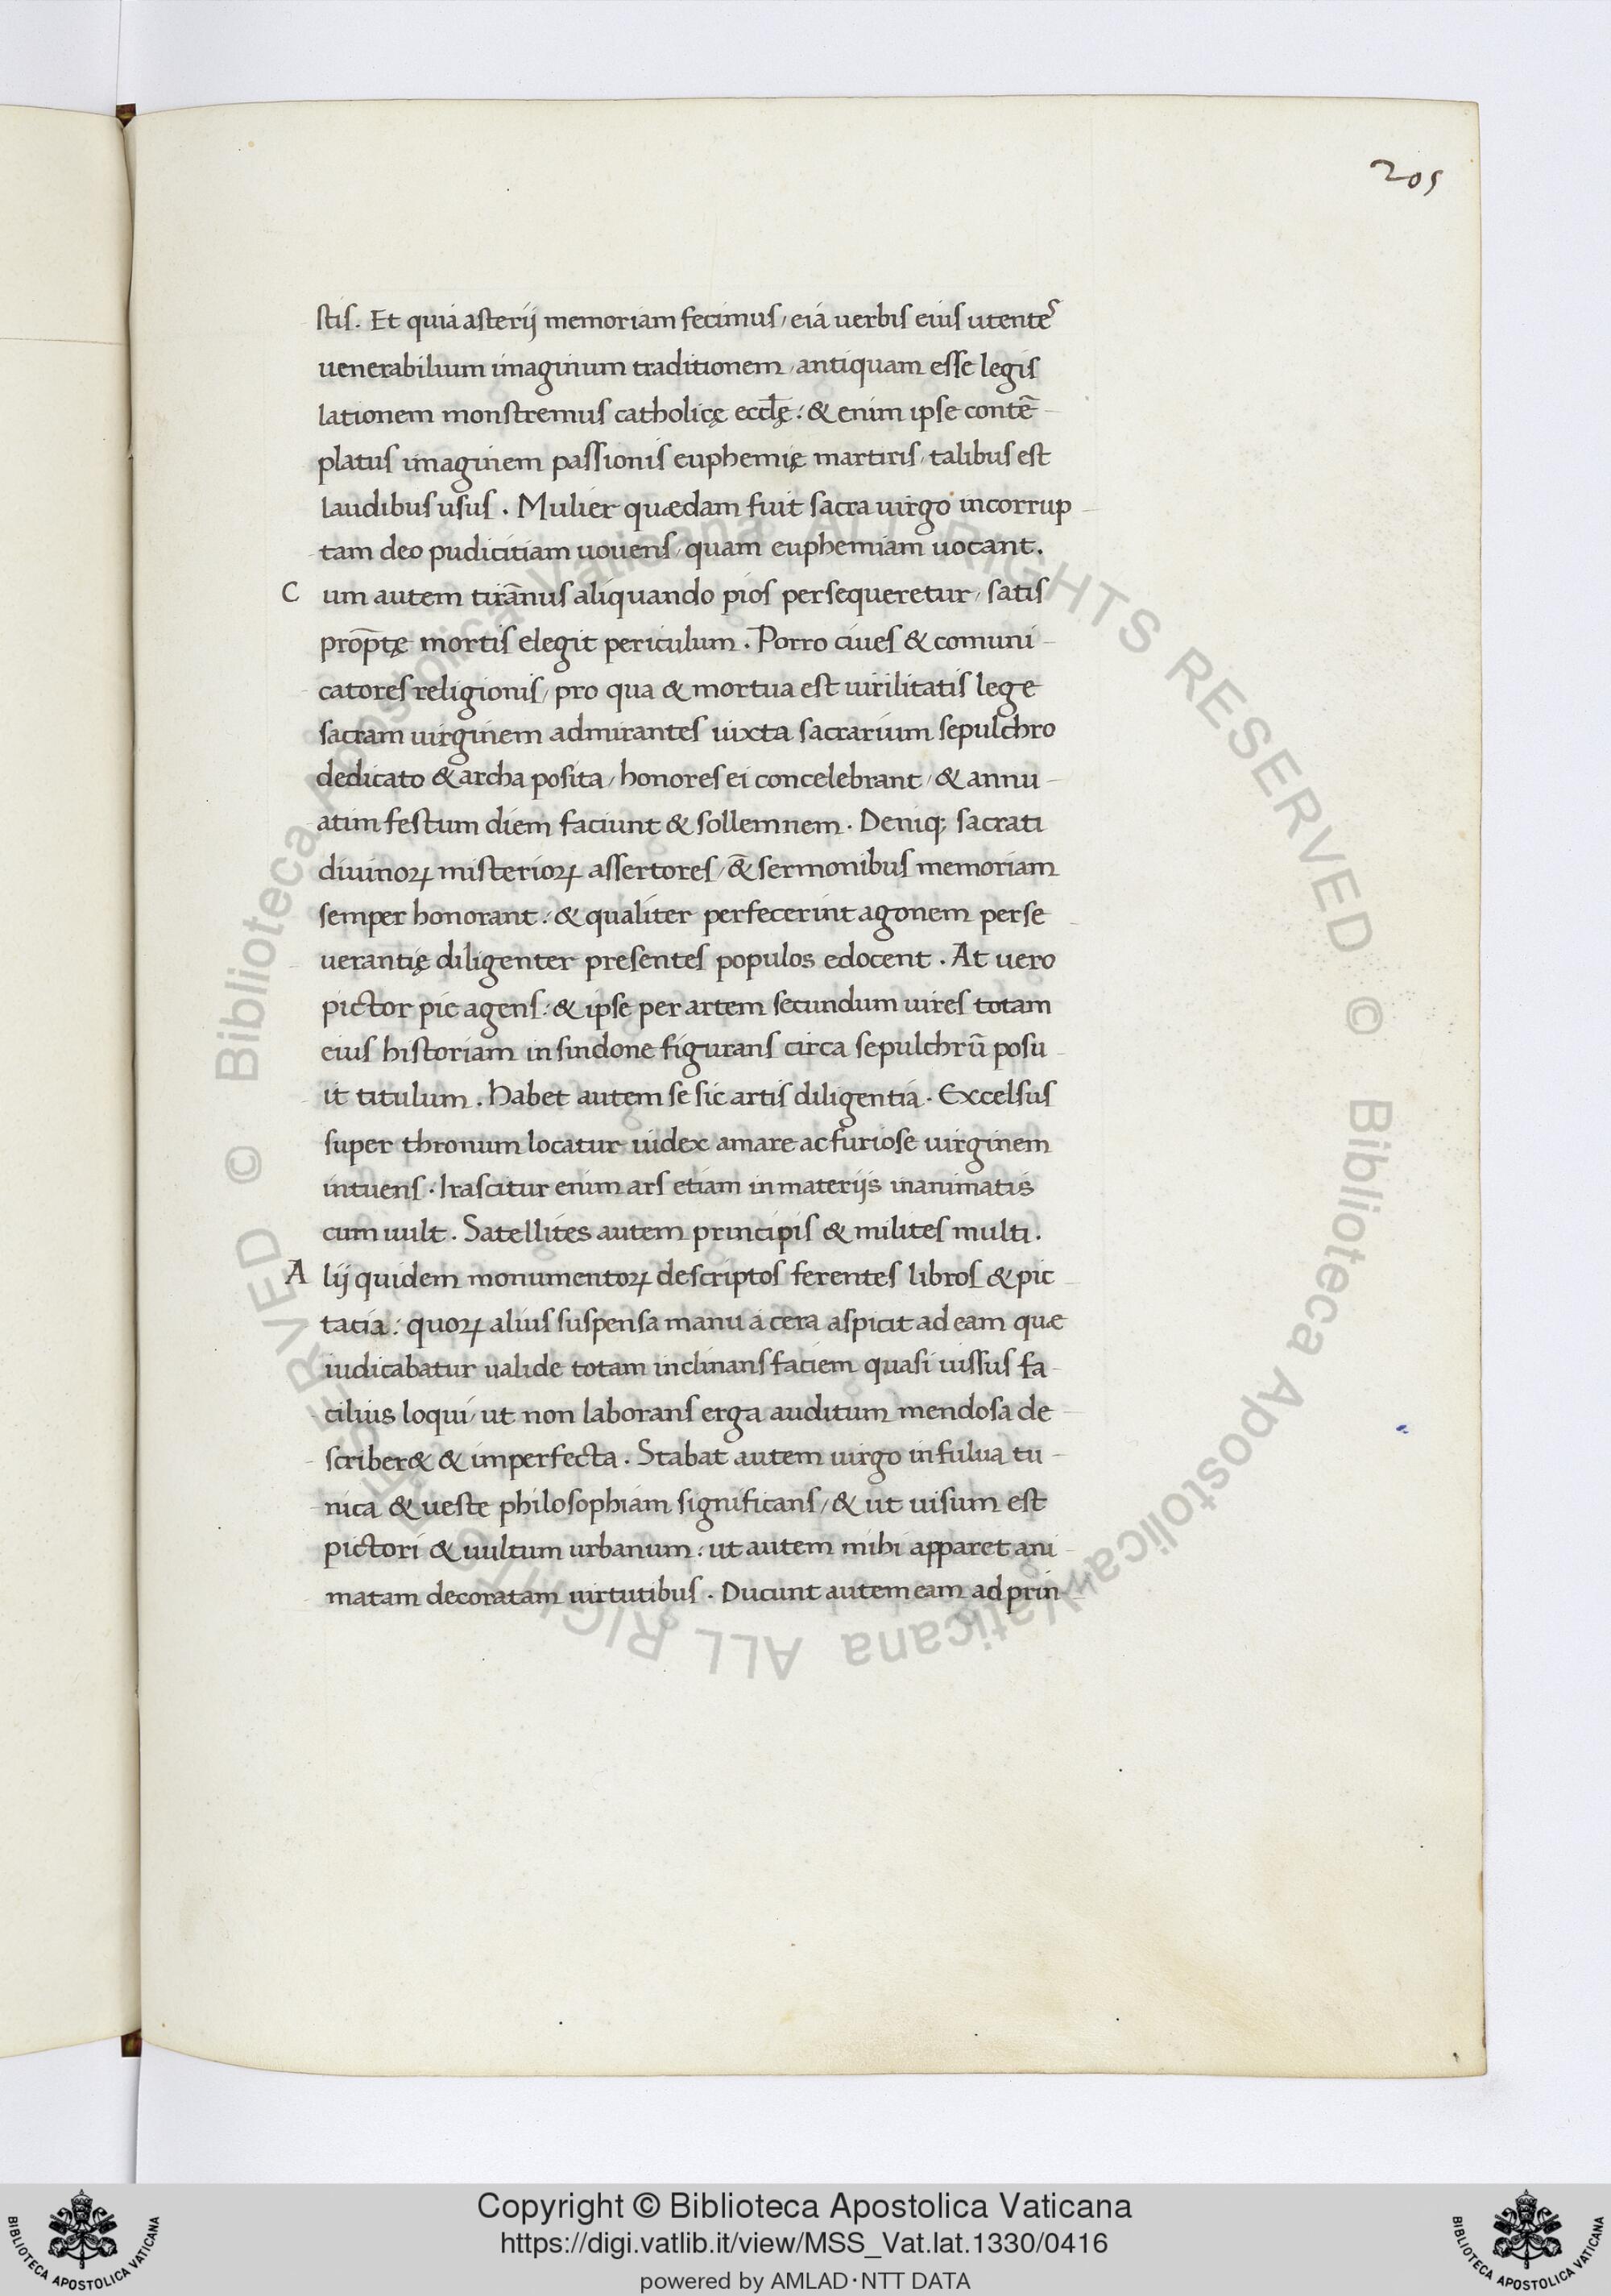 205
stis. Et quia asterij memoriam fecimus, eia uerbis eius utentes
uenerabilium imaginum traditionem, antiquam esse legis
lationem monstremus catholicę eccl̄ę: & enim ipse contē
platus imaginem passionis euphemię martiris, talibus est
laudibus usus. Mulier quædam fuit sacra uirgo incorrup
tam deo pudicitiam uouens, quam euphemiam uocant.
C um autem tirānus aliquando pios persequeretur, satis
prop̄tę mortis elegit periculum. Porro ciues & comuni
catores religionis, pro qua & mortua est uirilitatis lege
sacram uirginem admirantes iuxta sacrarium sepulchro
dedicato & archa posita, honores ei concelebrant, & annu
atim festum diem faciunt & sollemnem. Deniq; sacrati
diuinoꝝ misterioꝝ assertores, &̄ sermonibus memoriam
semper honorant: & qualiter perfecerint agonem perse
uerantię diligenter presentes populos edocent. At uero
pictor pie agens: & ipse per artem secundum uires totam
eius historiam in sindone figurans circa sepulchrū posu
it titulum. Habet autem se sic artis diligentia. Excelsus
super thronum locatur iudex amare ac furiose uirginem
intuens. Irascitur enim ars etiam in materijs inanimatis
cum uult. Satellites autem principis & milites multi.
A lij quidem monumentoꝝ descriptos ferentes libros & pic
tacia: quoꝝ alius suspensa manu a cera aspicit ad eam quæ
iudicabatur ualide totam inclinans faciem quasi iussus fa
cilius loqui, ut non laborans erga auditum mendosa de
scriber& & imperfecta. Stabat autem uirgo in fulua tu
nica & ueste philosophiam significans, & ut uisum est
pictori & uultum urbanum: ut autem mihi apparet ani
matam decoratam uirtutibus. Ducunt autem eam ad prin
© Biblioteca Apostolica Vaticana ALL RIGHTS RESERVED © Biblioteca Apostolica Vaticana ALL RIGHTS RESERVED
Copyright © Biblioteca Apostolica Vaticana
https://digi.vatlib.it/view/MSS_Vat.lat.1330/0416
powered by AMLAD·NTT DATA
BIBLIOTECA APOSTOLICA VATICANA
BIBLIOTECA APOSTOLICA VATICANA